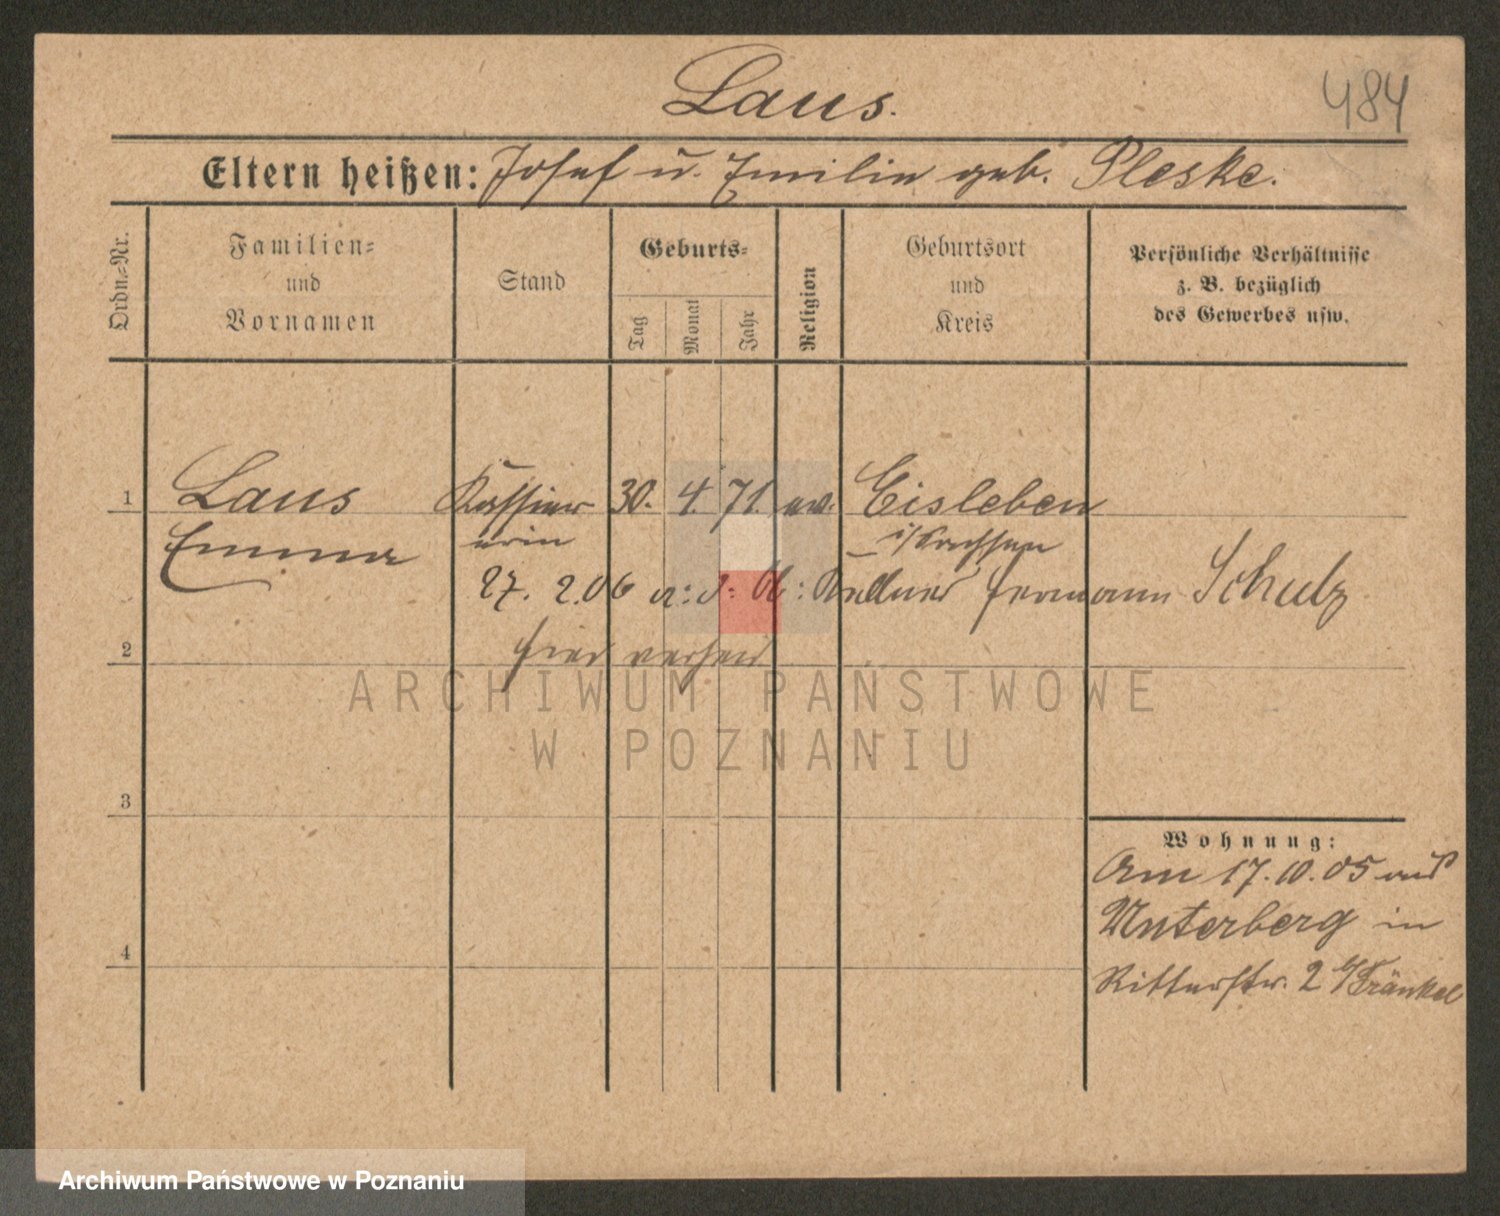 Laus.
484
Eltern heißen: Josef u. Emilie geb. Pleske.
Ordn.-Nr.
Familien-
und
Vornamen
Stand
Geburts-
Tag
Monat
Jahr
Religion
Geburtsort
und
Kreis
Persönliche Verhältnisse
z. B. bezüglich
des Gewerbes usw.
1 Laus Kassier 30. 4. 71. ev. Eisleben
Emma erin i/Sachsen
27. 2. 06 a: d: Kellner Hermann Schulz
2 hier
ARCHIWUM PAŃSTWOWE
W POZNANIU
3
Wohnung:
Am 17.10.05 aus
Unterberg in
4
Ritterstr. 2 b/Fränkel
Archiwum Państwowe w Poznaniu